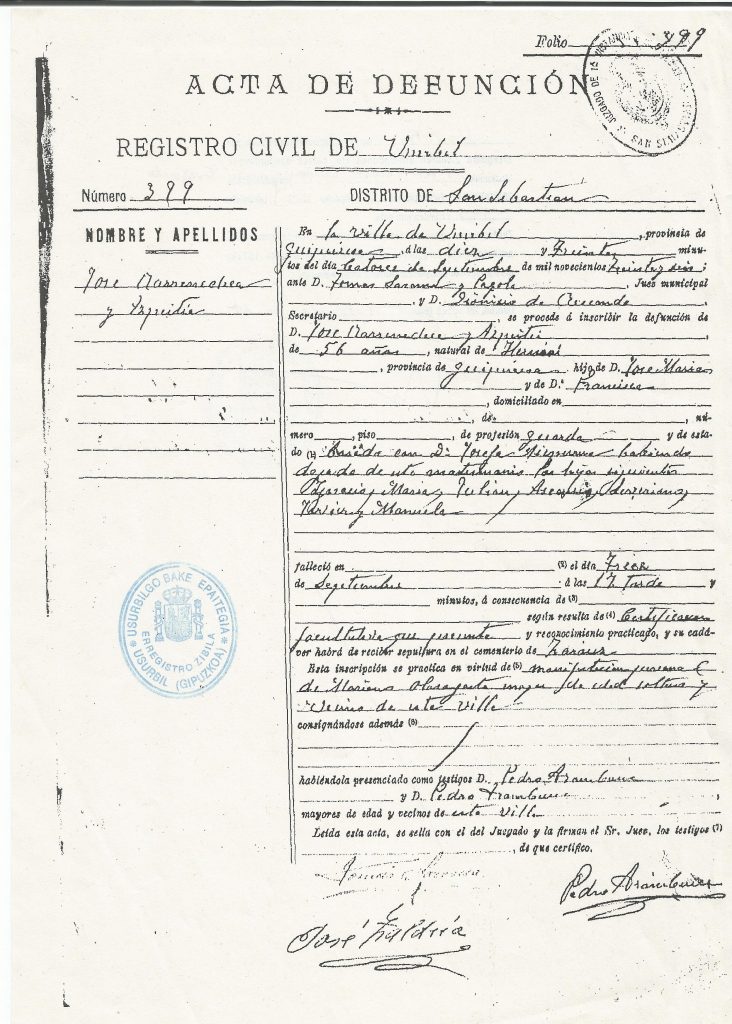 Folio 399
JUZGADO DE 1ª INSTANCIA
SAN SEBASTIAN
ACTA DE DEFUNCIÓN
REGISTRO CIVIL DE Usurbil
Número 399
DISTRITO DE San Sebastian
NOMBRE Y APELLIDOS
Jose
y Azpeitia
En la villa de Usurbil, provincia de
Guipuzcoa, á las diez y treinta minu-
tos del día Catorce de Septiembre de mil novecientos treinta y seis
ante D. Tomas y Juez municipal
y D. Dionisio de
Secretario, se procede á inscribir la defunción de
D. Jose y Azpeitia
de 56 años, natural de Hernani
, provincia de Guipuzcoa hijo de D. Jose Maria
y de D.ª Francisca
, domiciliado en
, de , nú-
mero , piso , de profesión guarda y de esta-
do (1) Casado con D.ª Josefa habiendo
dejado de este matrimonio los hijos siguientes
Maria, Julian,
Javier y Manuela
falleció en (2) el día Trece
de Septiembre á las 17 tarde y
minutos, á consecuencia de (3)
según resulta de (4) Certificacion
facultativa que presenta y reconocimiento practicado, y su cadá-
ver habrá de recibir sepultura en el cementerio de Zarauz
Esta inscripción se practica en virtud de (5) manifestacion personal
de Mariano Olasagasti mayor de edad soltero y
vecino de esta villa
consignándose además (6)
habiéndola presenciado como testigos D. Pedro Aramburu
y D. Pedro Aramburu
mayores de edad y vecinos de esta villa
Leída esta acta, se sella con el del Juzgado y la firman el Sr. Juez, los testigos (7)
, de que certifico.
USURBILGO BAKE EPAITEGIA
ERREGISTRO ZIBILA
USURBIL (GIPUZKOA)
Tomás
Pedro Aramburu
José Zaldúa